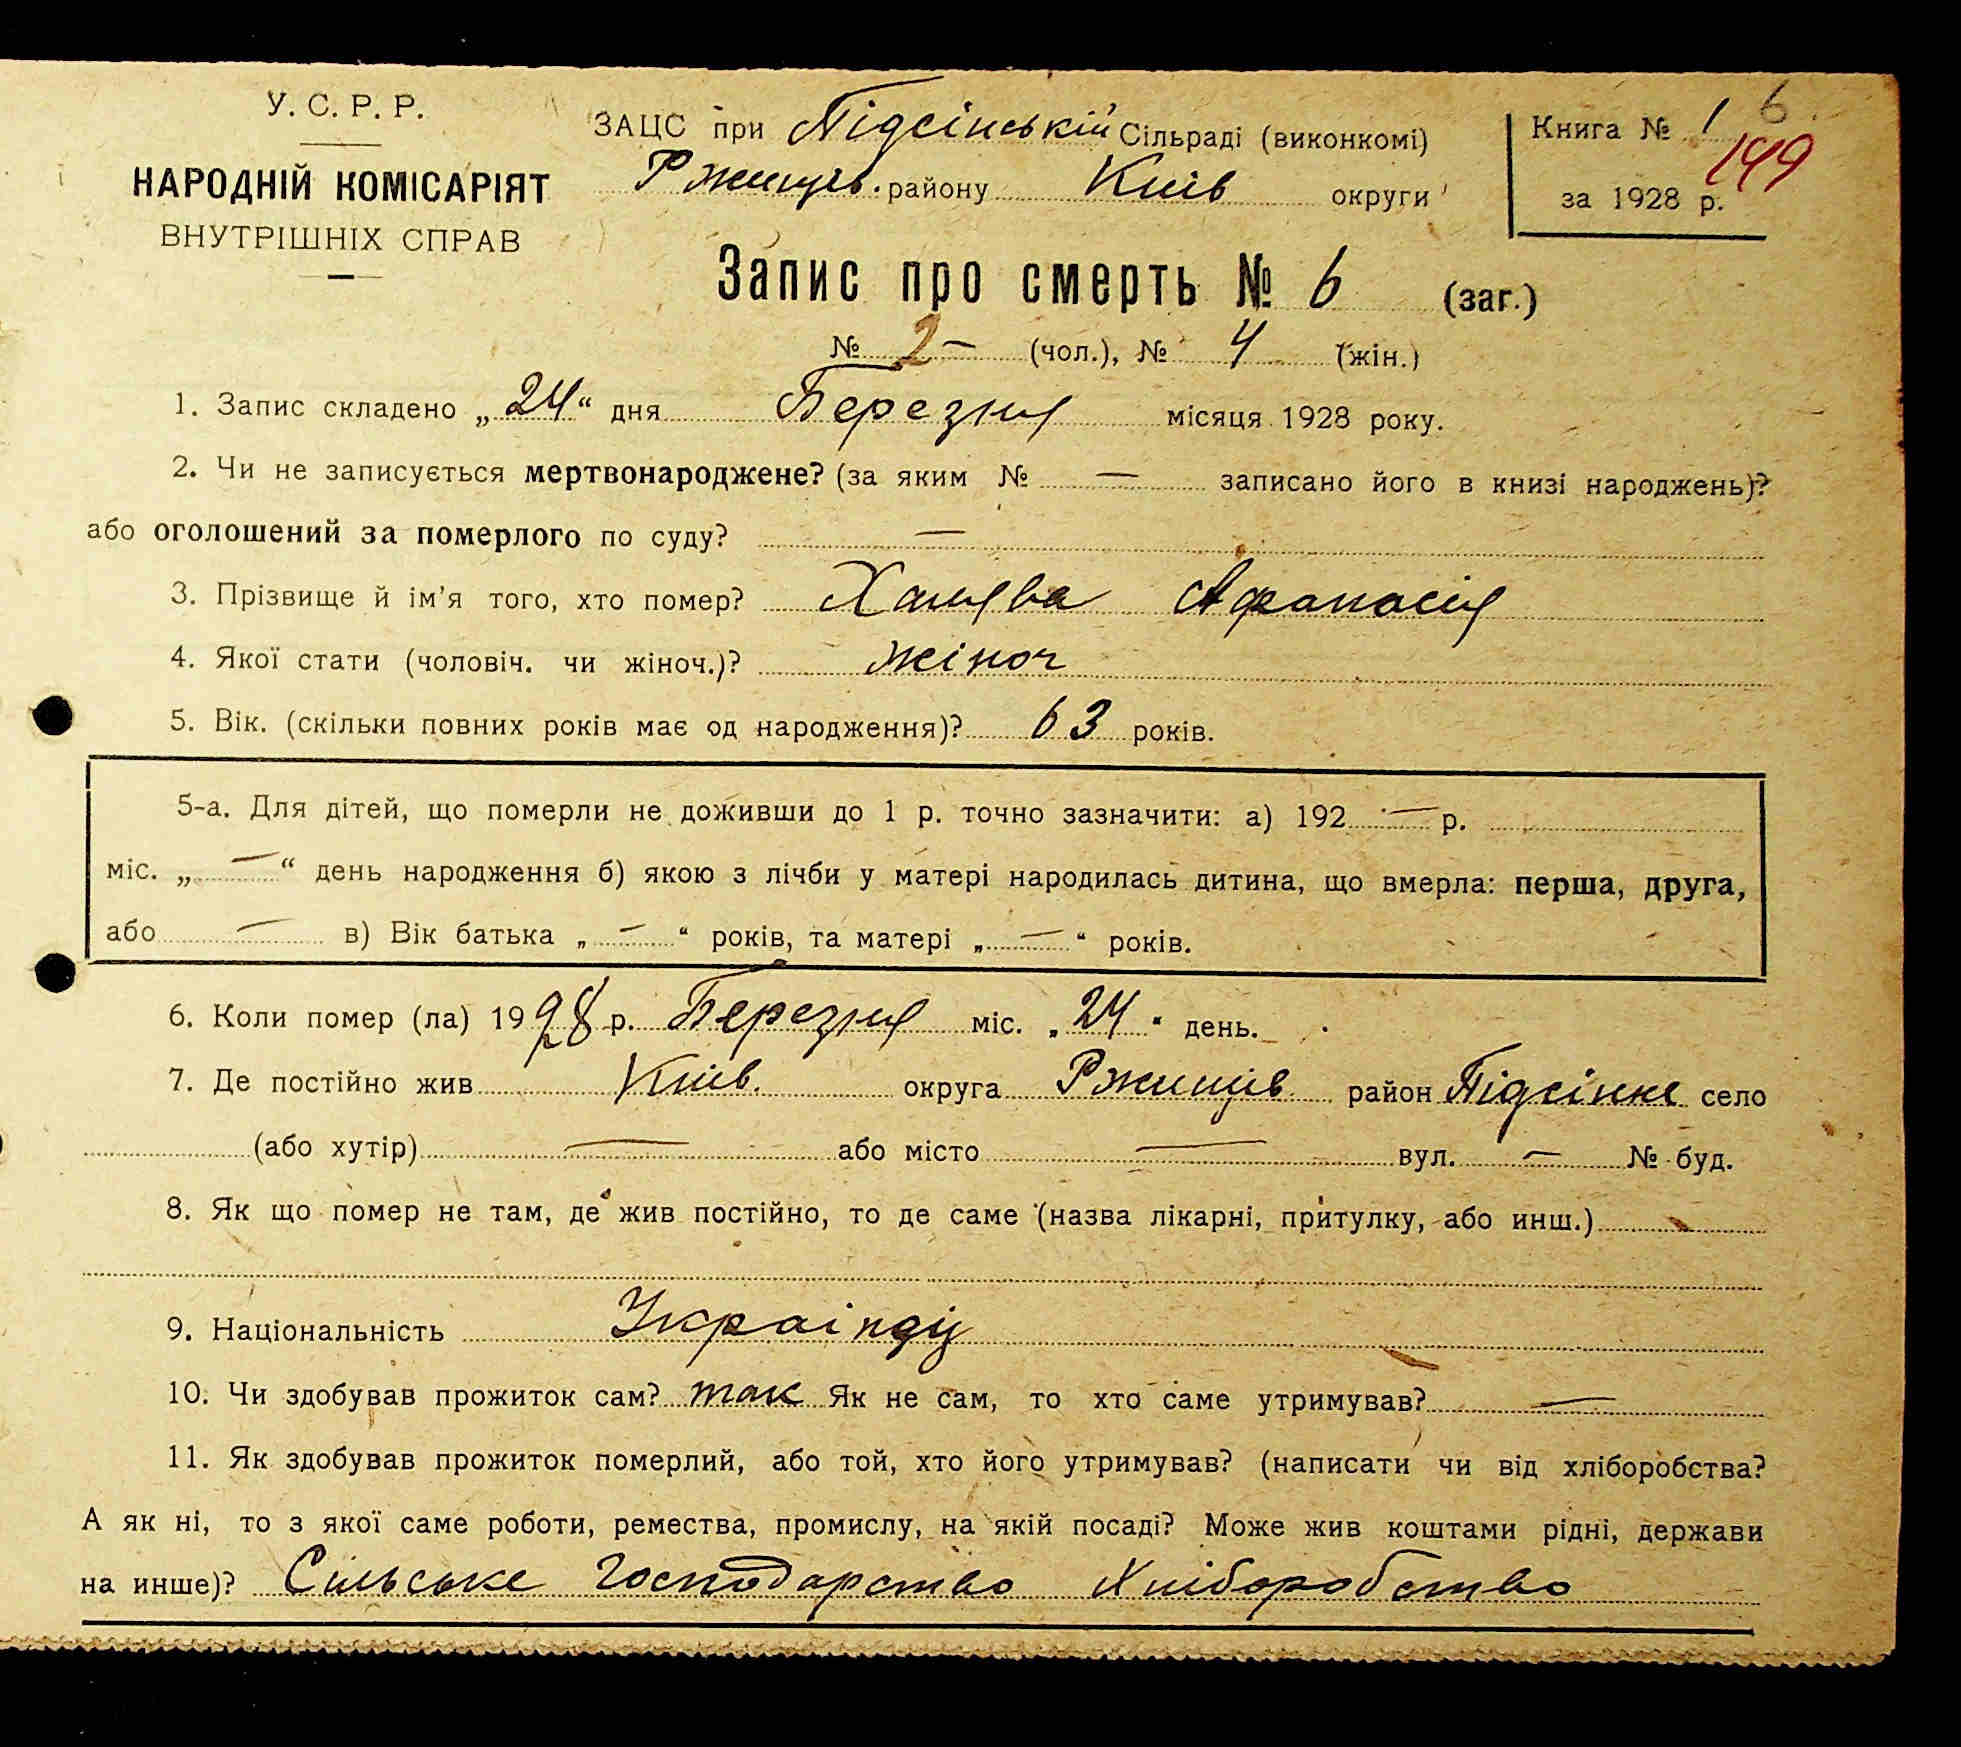 У. С. Р. Р.
НАРОДНІЙ КОМІСАРІЯТ
ВНУТРІШНІХ СПРАВ
ЗАЦС при Підсінській Сільраді (виконкомі)
Ржищів. району Київ округи
Книга № 1 6
149
за 1928 р.
Запис про смерть № 6 (заг.)
№ 2 — (чол.), № 4 (жін.)
1. Запис складено „24“ дня Березня місяця 1928 року.
2. Чи не записується мертвонароджене? (за яким № — записано його в книзі народжень)?
або оголошений за померлого по суду? —
3. Прізвище й ім'я того, хто помер? Халява Афанасія
4. Якої стати (чоловіч. чи жіноч.)? жіноч
5. Вік. (скільки повних років має од народження)? 63 років.
5-а. Для дітей, що померли не доживши до 1 р. точно зазначити: а) 192 — р.
міс. „ — “ день народження б) якою з лічби у матері народилась дитина, що вмерла: перша, друга,
або — в) Вік батька „ — “ років, та матері „ — “ років.
6. Коли помер (ла) 1928 р. Березня міс. „24“ день.
7. Де постійно жив Київ. округа Ржищів район Підсінне село
(або хутір) — або місто — вул. — № буд.
8. Як що помер не там, де жив постійно, то де саме (назва лікарні, притулку, або инш.)
9. Національність Украінці
10. Чи здобував прожиток сам? так Як не сам, то хто саме утримував? —
11. Як здобував прожиток померлий, або той, хто його утримував? (написати чи від хліборобства?
А як ні, то з якої саме роботи, ремества, промислу, на якій посаді? Може жив коштами рідні, держави
на инше)? Сільське господарство Хліборобство